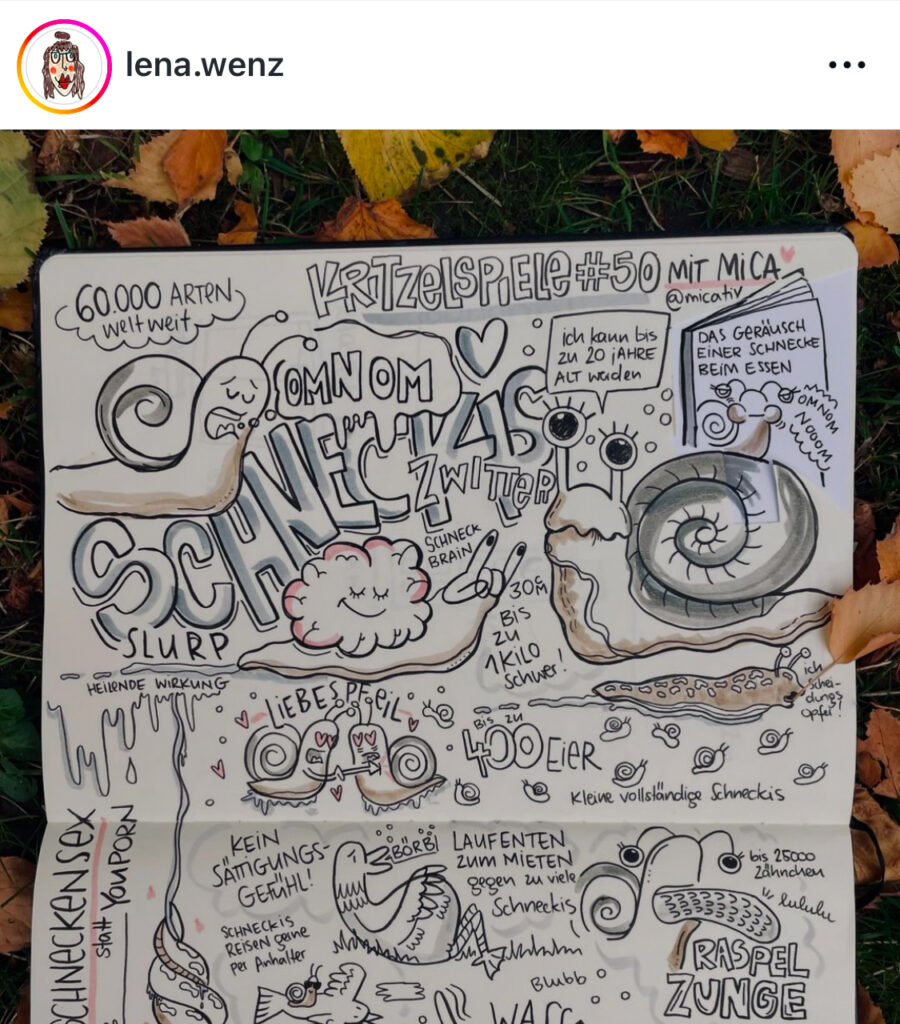 lena.wenz
KRITZELSPIELE #50 MIT MiCA
@micativ
60.000 ARTEN
weltweit
OMNOM
ich kann bis
zu 20 JAHRE
ALT werden
DAS GERÄUSCH
EINER SCHNECKE
BEIM ESSEN
OMNOM
NOOOM
SCHNECKIS
ZWITTER
SCHNECK
BRAIN
30G
Bis
zu
1 KILO
Schwer!
SLURP
HEILENDE WIRKUNG
ich
schei-
dungs
opfer!
LIEBESPFEIL
Bis zu
400 EIER
Kleine vollständige Schneckis
SCHNECKENSEX
statt YOUPORN
KEIN
SÄTTIGUNGS-
GEFÜHL!
BÖRBi
LAUFENTEN
ZUM MIETEN
gegen zu viele
Schneckis
bis 25000
Zähnchen
lululu
RASPEL
ZUNGE
SCHNECKIS
REISEN gerne
per Anhalter
Blubb